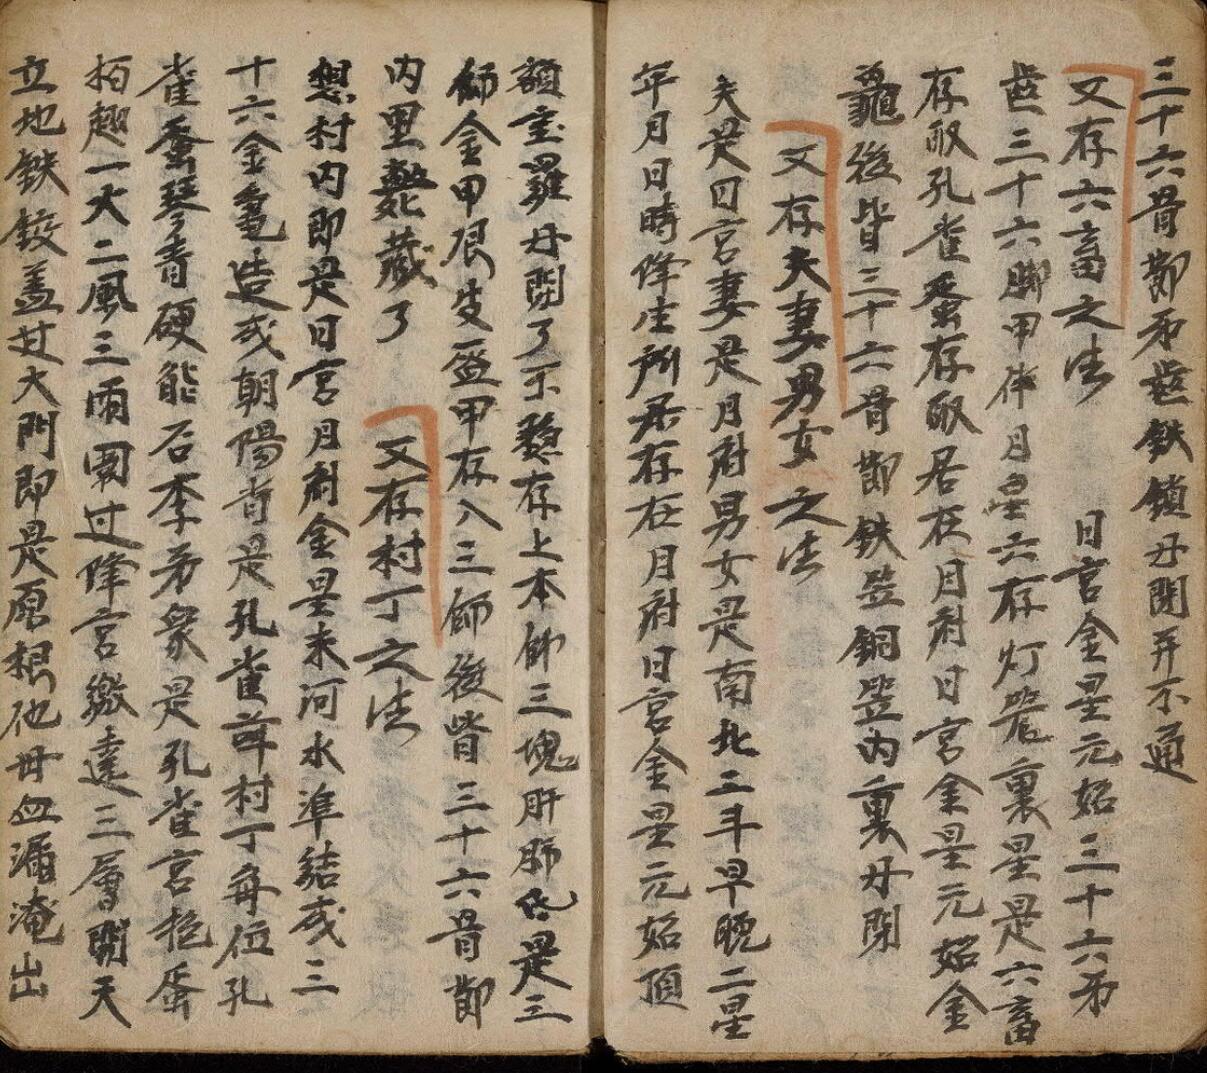 三十六骨節牙齒鉄鎖丹閉并不通
又存六畜之法
日宮金星元始三十六牙
齒三十六脚甲伴月星六存灯裏星是六畜
存取孔雀蛋存取居在月府日宮金星元始金
龜後皆三十六骨節鉄登銅登内裏丹閉
又存夫妻男女之法
夫是日宮妻是月府男女是南北二斗早晚二星
年月日時降生所存在月府日宮金星元始頂
額丹閉了不愁存上本師三塊肝肺是三
師金甲盔甲存入三師後皆三十六骨節
内里藏了
又存村丁之法
想村内即是日宮月府金星来河水準結成三
十六金龟造成朝陽肯是孔雀村丁位孔
雀蛋琴青硬能否李弟衆是孔雀宮蛋
拍趣一大二風三雨过降宮三層開天
立地鉄鉸盖廿大門即是原根他丹血山